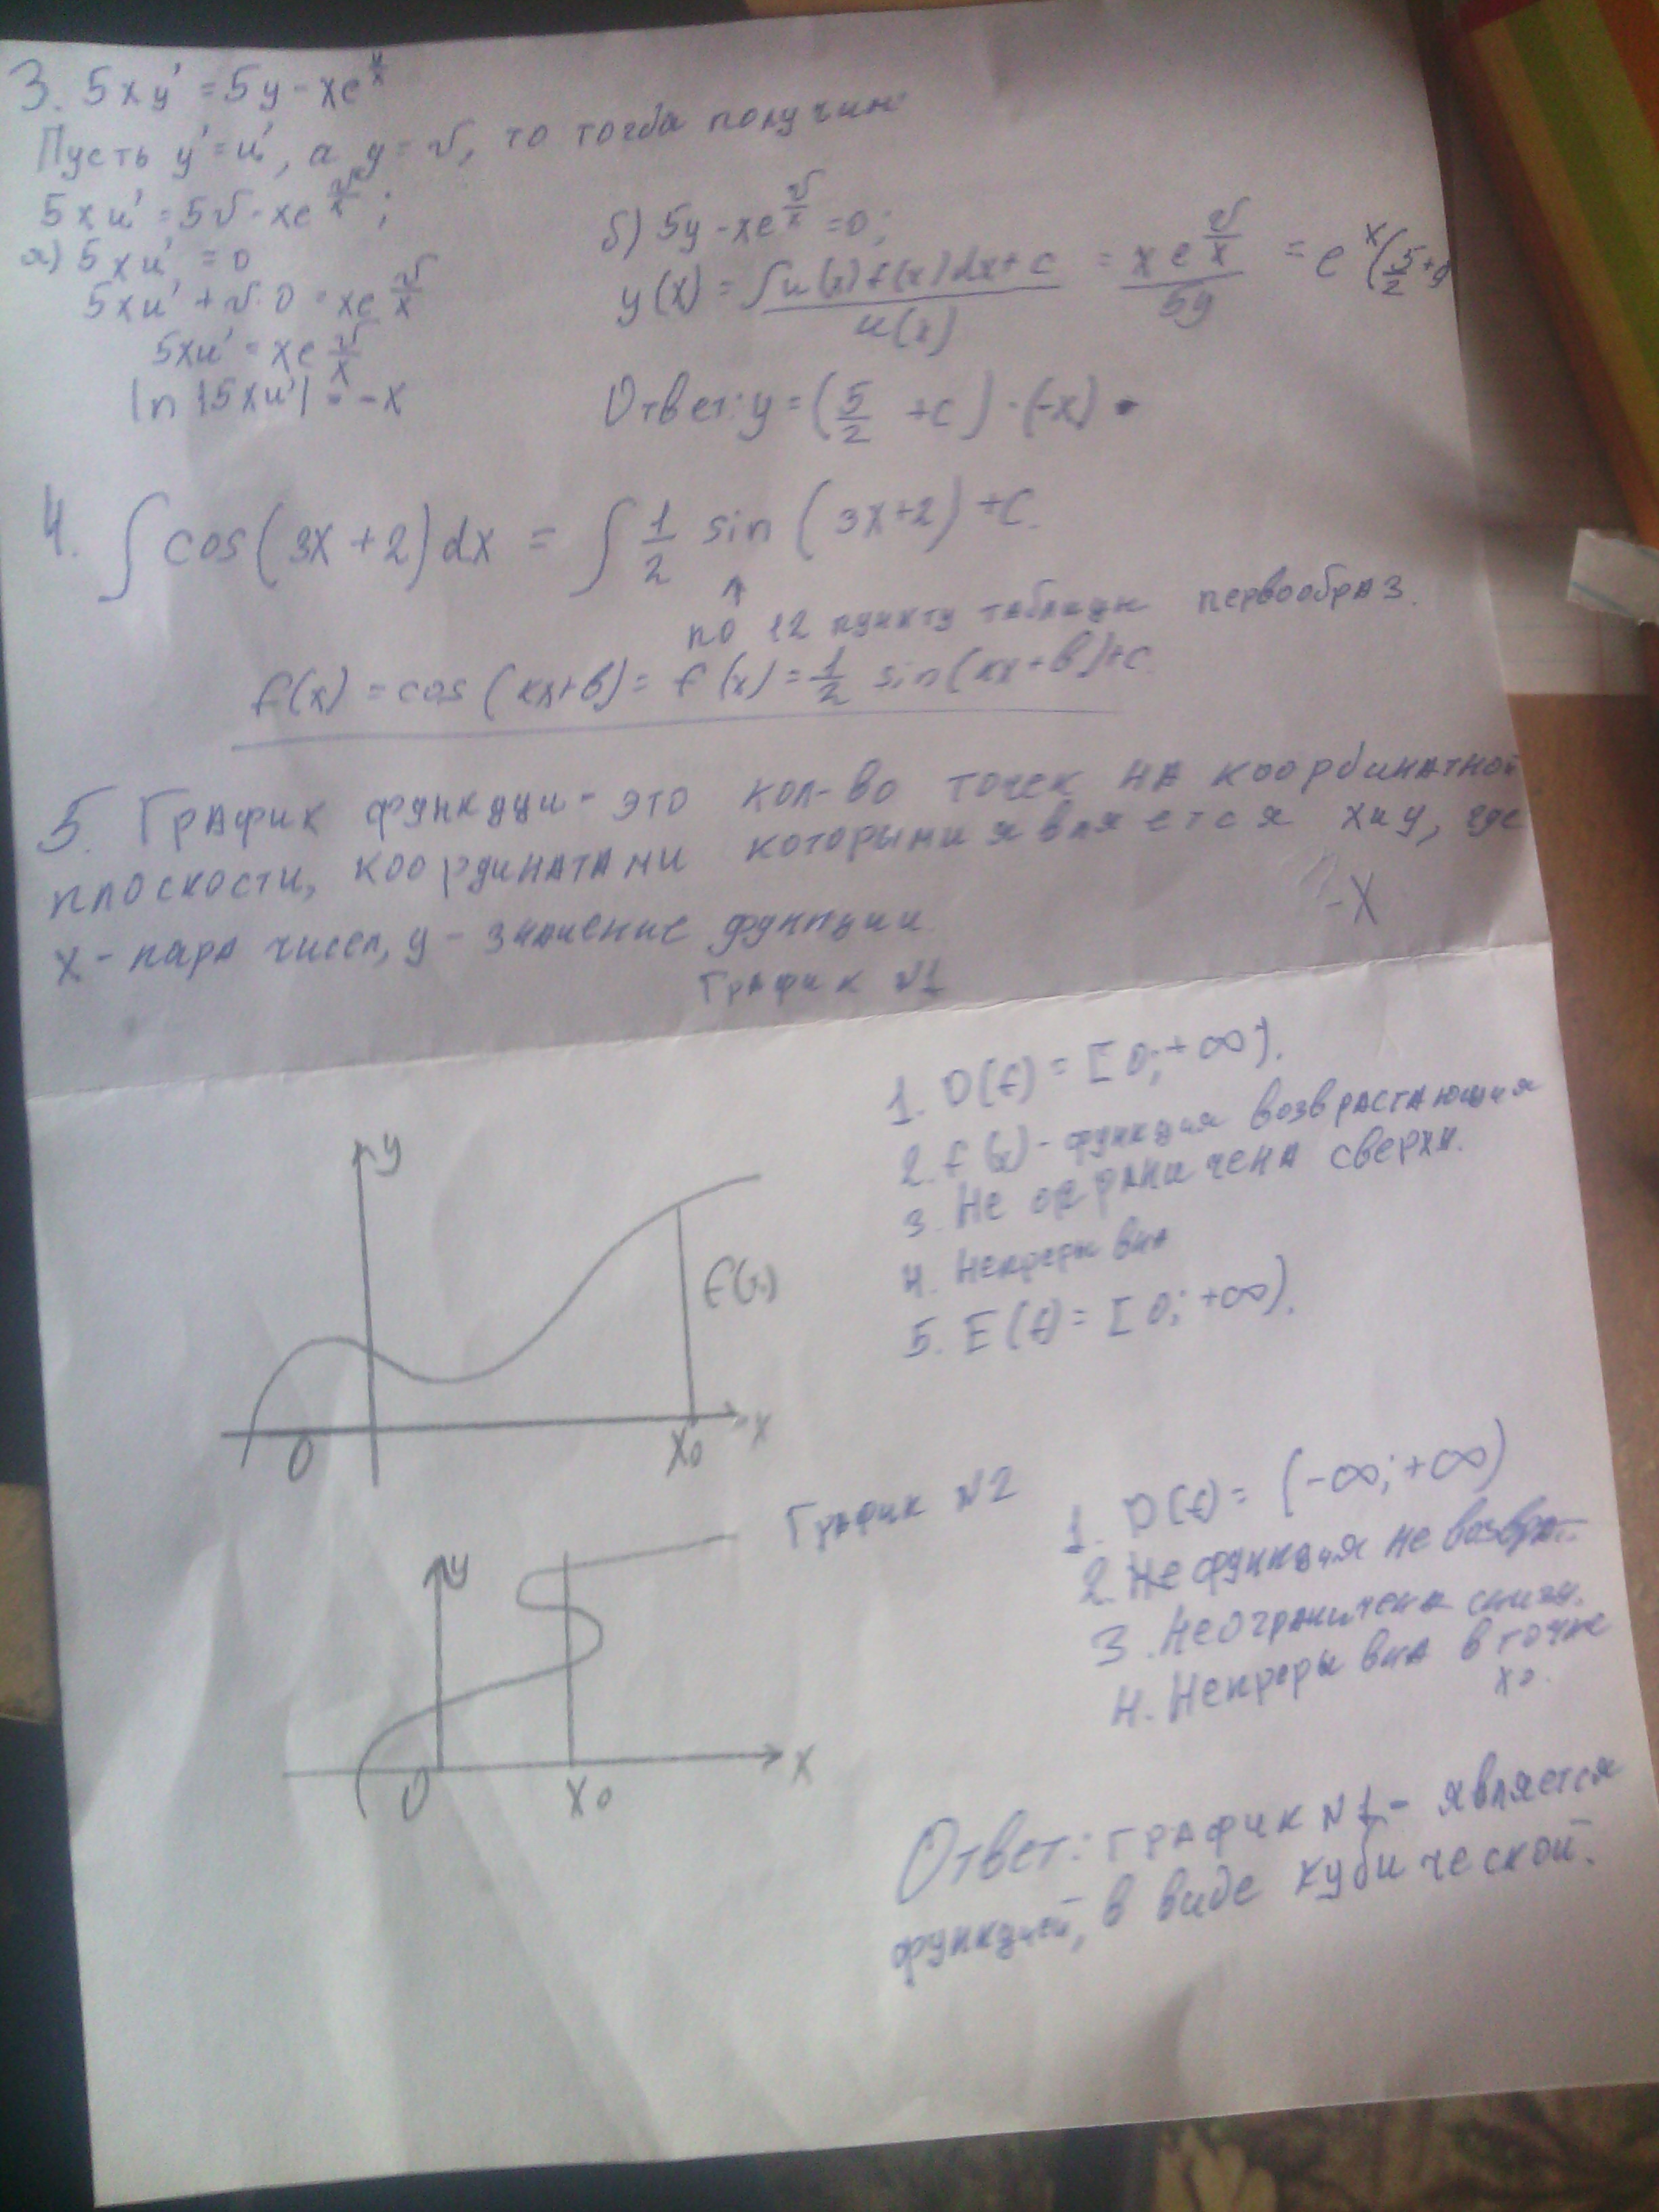 3. 5xy' = 5y - xe^{y/x}
Пусть y' = u', а y = v, то тогда получим:
5xu' = 5v - xe^{v/x};
а) 5xu' = 0
5xu' + v·0 = xe^{v/x}
5xu' = xe^{v/x}
ln|5xu'| = -x
б) 5y - xe^{v/x} = 0;
y(x) = ∫u(x)f(x)dx+c / u(x) = xe^{v/x} / 5y = e^x(5/2 +
Ответ: y = (5/2 + c)·(-x)
4. ∫cos(3x+2)dx = ∫ 1/2 sin(3x+2) + c.
↑
по 12 пункту таблицы первообраз.
f(x) = cos(kx+b) = f(x) = 1/2 sin(kx+b)+c
5. График функции - это кол-во точек на координатной
плоскости, координатами которыми является x и y, где
x - пара чисел, y - значение функции.
-x
График №1
1. D(f) = [0; +∞).
2. f(x) - функция возврастающия
3. Не ограничена сверха.
4. Непрерывна
5. E(f) = [0; +∞).
y
f(x)
0
x₀
x
График №2
1. D(f) = (-∞; +∞)
2. Не функция не
3. Не ограничена снизу.
4. Непрерывна в точке
x₀.
y
0
x₀
x
Ответ: график №1 - является
функцией, в виде кубической.